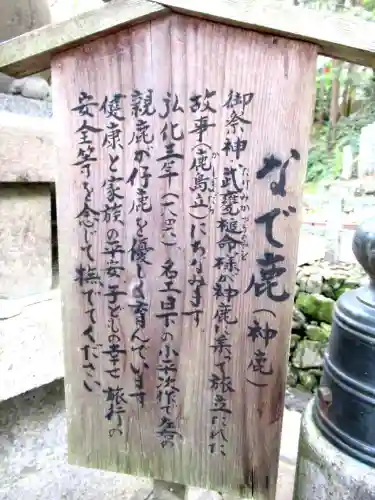 なで鹿(神鹿)
御祭神・武甕槌命様が神鹿に乗って旅立たれた
たけみかづちのみこと
故事(鹿島立)にちなみます
かしまだち
弘化三年(一八四六)名工日下の小平次作で左の
親鹿が仔鹿を優しく育んでいます
健康と家族の平安・子どもの幸せ・旅行の
安全等を念じて撫でてください